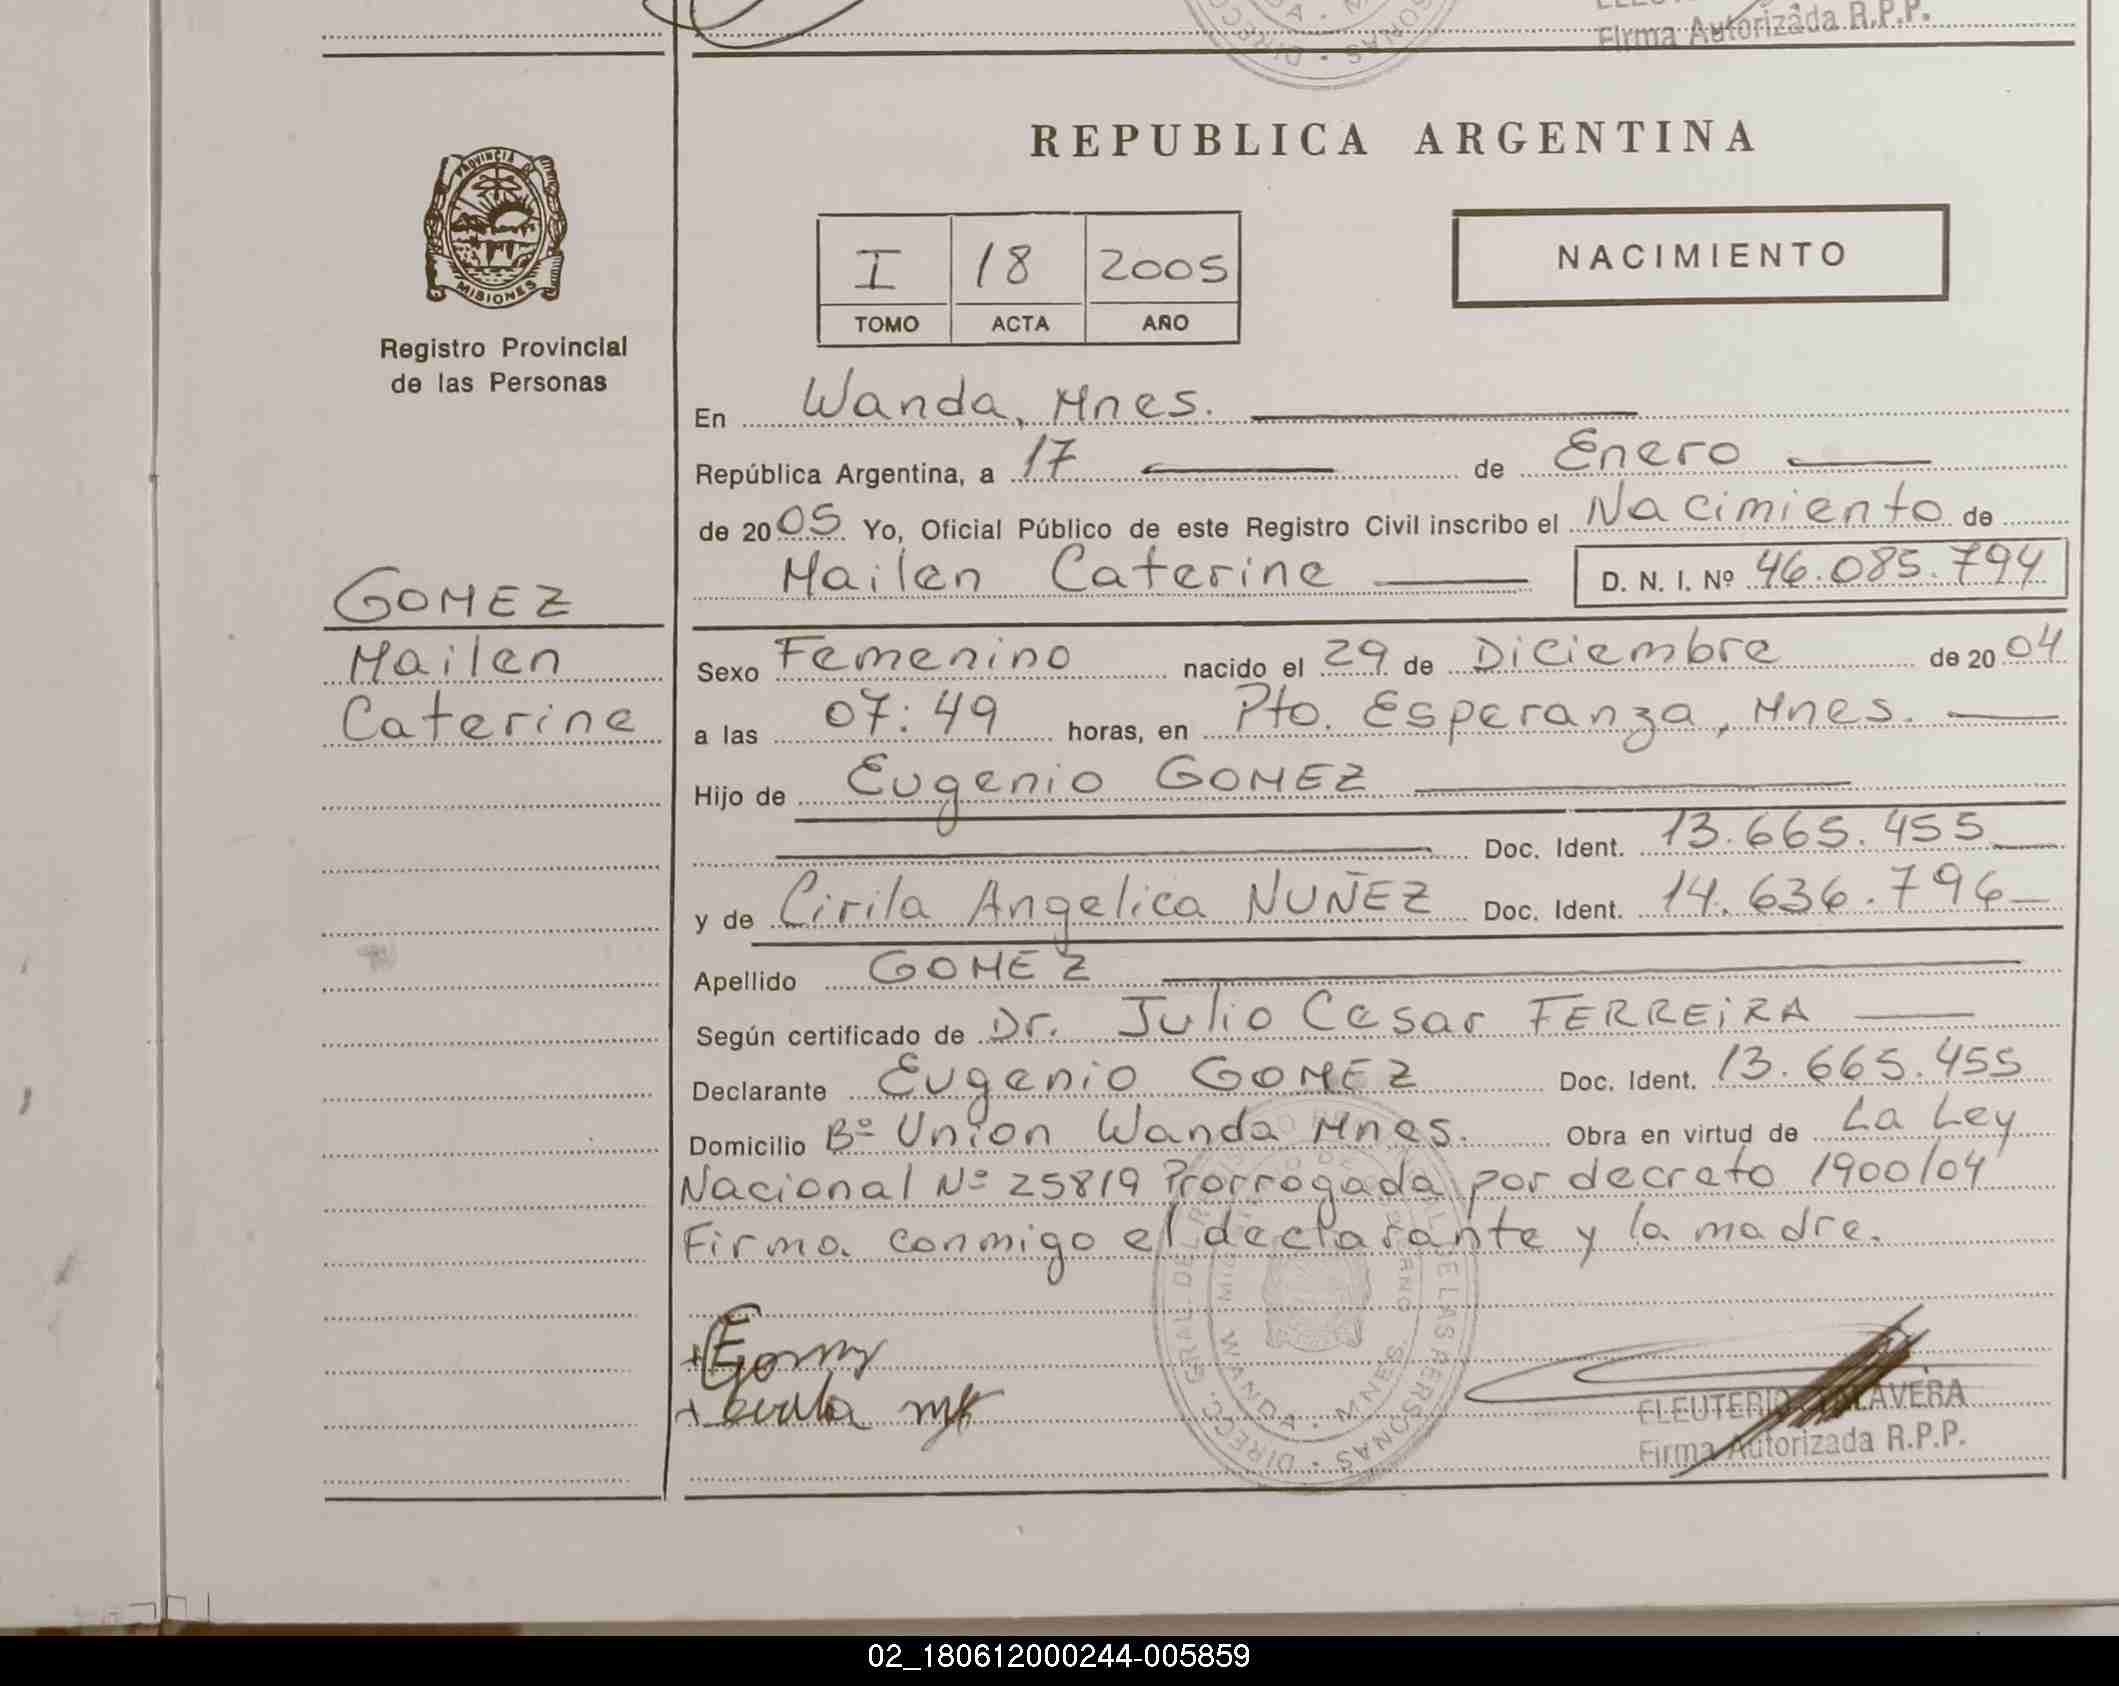 Firma Autorizada R.P.P.
REPUBLICA ARGENTINA
PROVINCIA DE
MISIONES
Registro Provincial
de las Personas
I 18 2005
TOMO ACTA AÑO
NACIMIENTO
En Wanda, Mnes.
República Argentina, a 17 de Enero
de 2005 Yo, Oficial Público de este Registro Civil inscribo el Nacimiento de
Mailen Caterine D. N. I. Nº 46.085.794
GOMEZ
Mailen
Caterine
Sexo Femenino nacido el 29 de Diciembre de 2004
a las 07:49 horas, en Pto. Esperanza, Mnes.
Hijo de Eugenio GOMEZ
Doc. Ident. 13.665.455
y de Cirila Angelica NUÑEZ Doc. Ident. 14.636.796
Apellido GOMEZ
Según certificado de Dr. Julio Cesar FERREIRA
Declarante Eugenio GOMEZ Doc. Ident. 13.665.455
Domicilio Bº Union Wanda Mnes. Obra en virtud de La Ley
Nacional Nº 25819 Prorrogada por decreto 1900/04
Firma conmigo el declarante y la madre.
WANDA - MNES
ELEUTERIO TALAVERA
Firma Autorizada R.P.P.
02_180612000244-005859